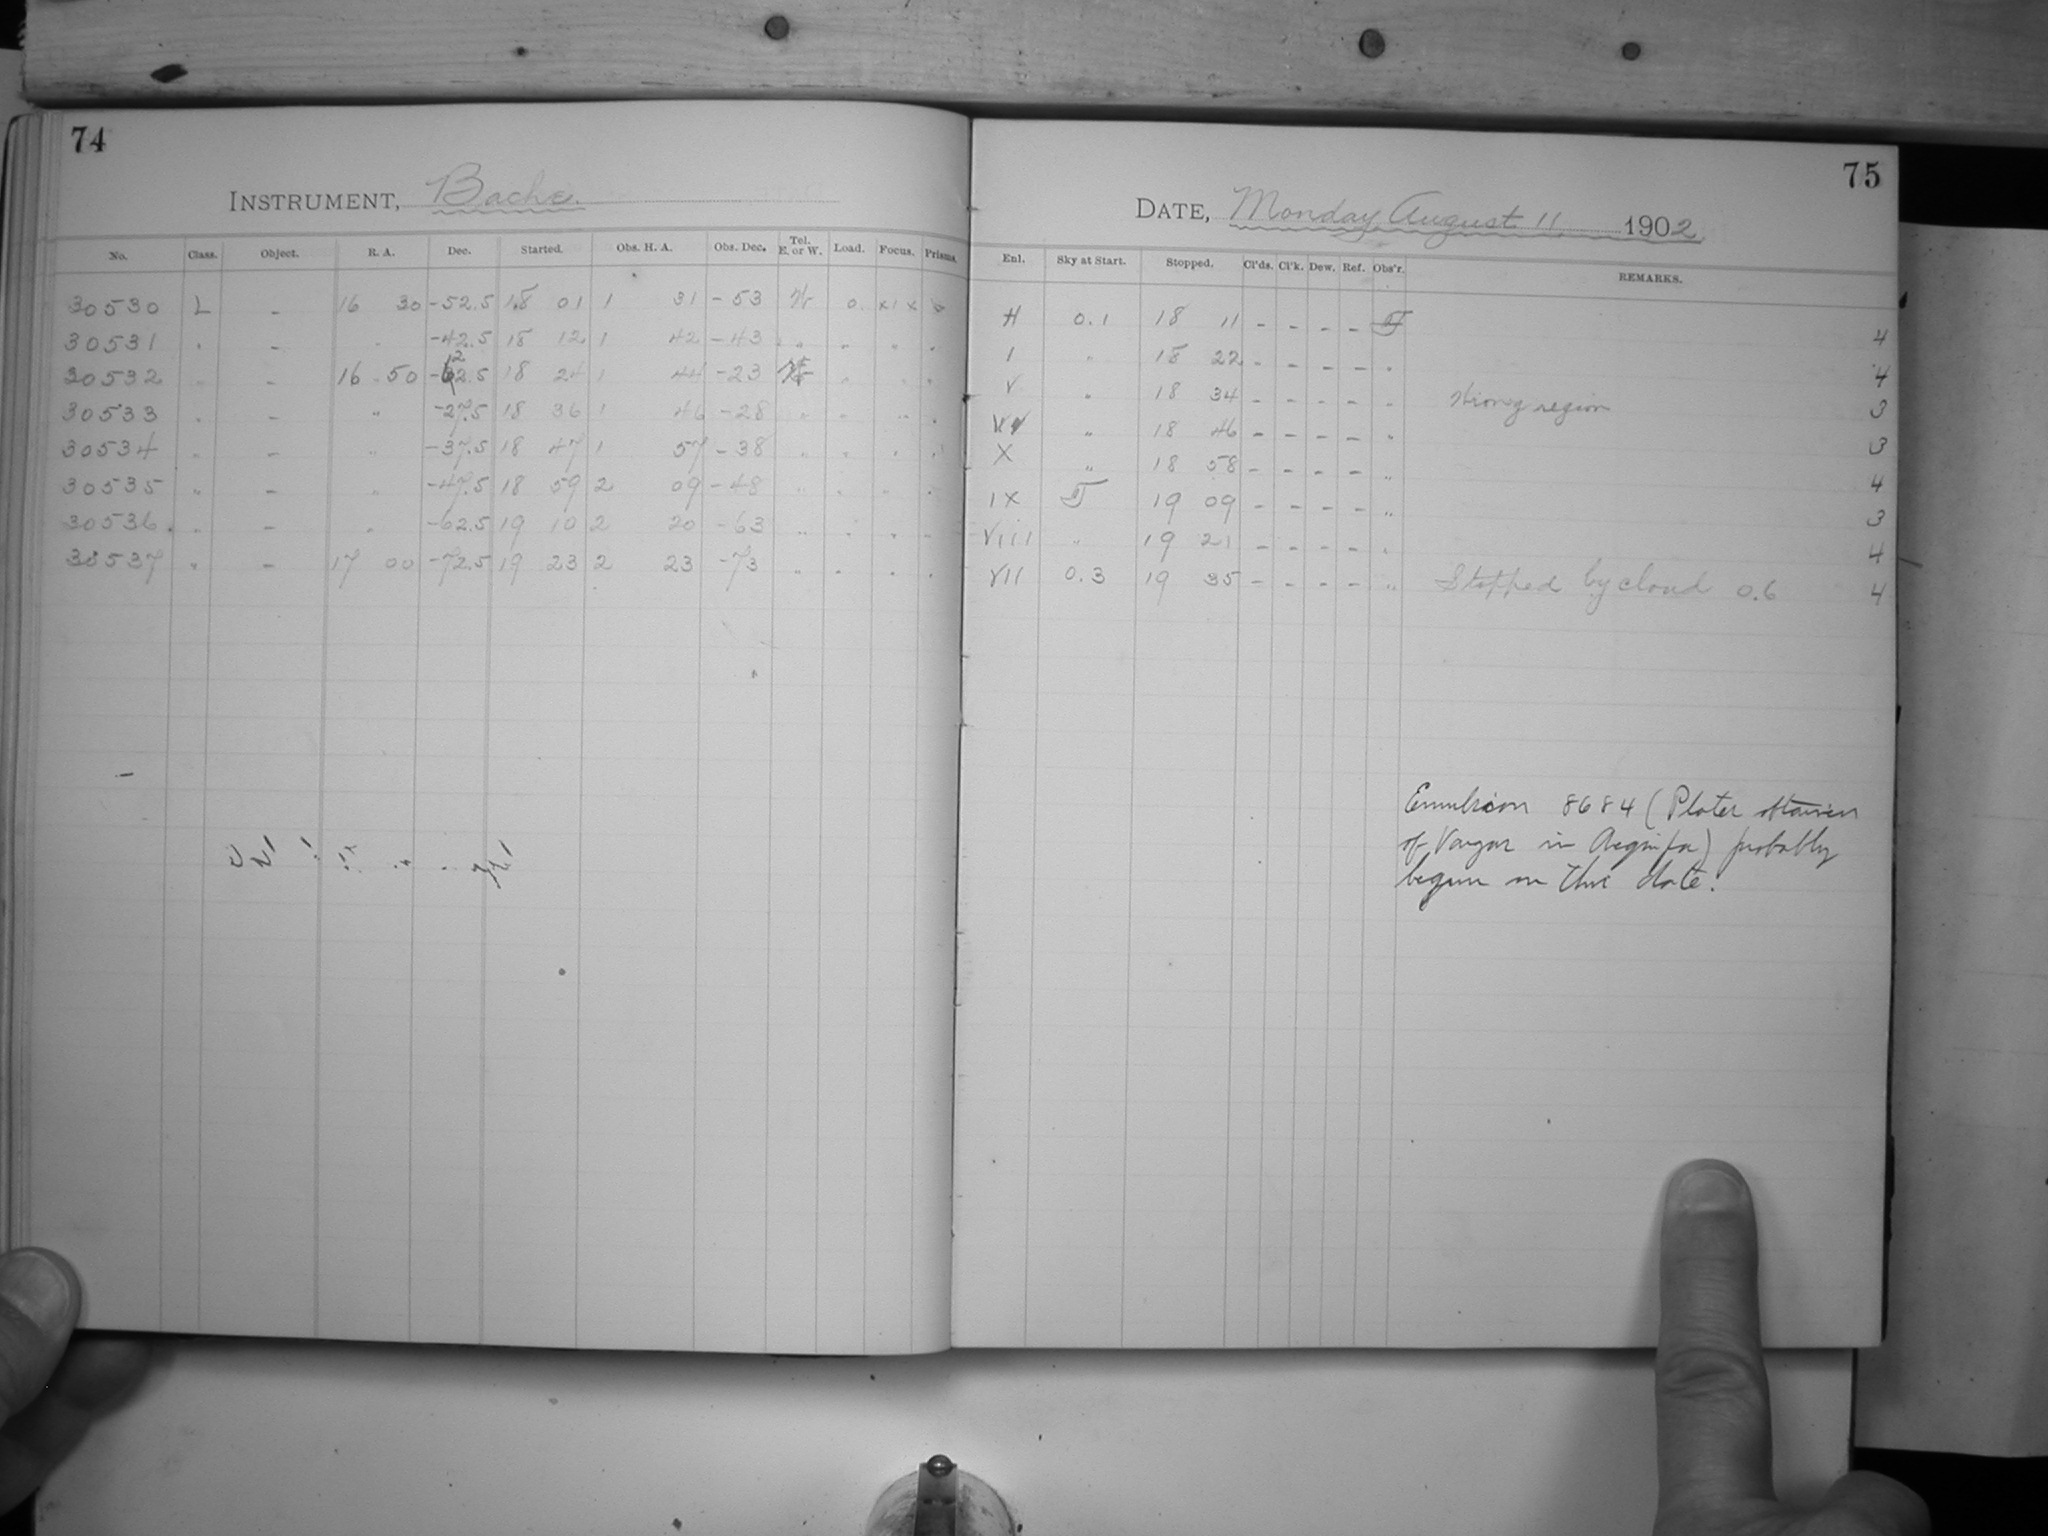 74
INSTRUMENT, Bache.
No. Class. Object. R. A. Dec. Started. Obs. H. A. Obs. Dec. Tel. E. or W. Load. Focus. Prisms.
30530 L - 16 30 -52.5 18 01 1 31 -53 W 0. x1x
30531 " - " -42.5 18 12 1 42 -43 " " " "
30532 " - 16 50 -2.5 18 24 1 44 -23 " " "
30533 " - " -27.5 18 36 1 46 -28 " " " "
30534 " - " -37.5 18 47 1 57 -38 " " " "
30535 " - " -47.5 18 59 2 09 -48 " " " "
30536. " - " -62.5 19 10 2 20 -63 " " " "
30537 " - 17 00 -72.5 19 23 2 23 -73 " " " "
75
DATE, Monday, August 11 1902
Enl. Sky at Start. Stopped. Cl'ds. Cl'k. Dew. Ref. Obs'r. REMARKS.
H 0.1 18 11 - - - - 4
I " 18 22 - - - - " 4
V " 18 34 - - - - " Wrong region 3
" 18 46 - - - - " 3
X " 18 58 - - - - " 4
IX 19 09 - - - - " 3
VIII " 19 21 - - - - " 4
VII 0.3 19 35 - - - - " Stopped by cloud 0.6 4
Emulsion 8684 (Plates
of Vargas in Arequipa) probably
begun on this date.